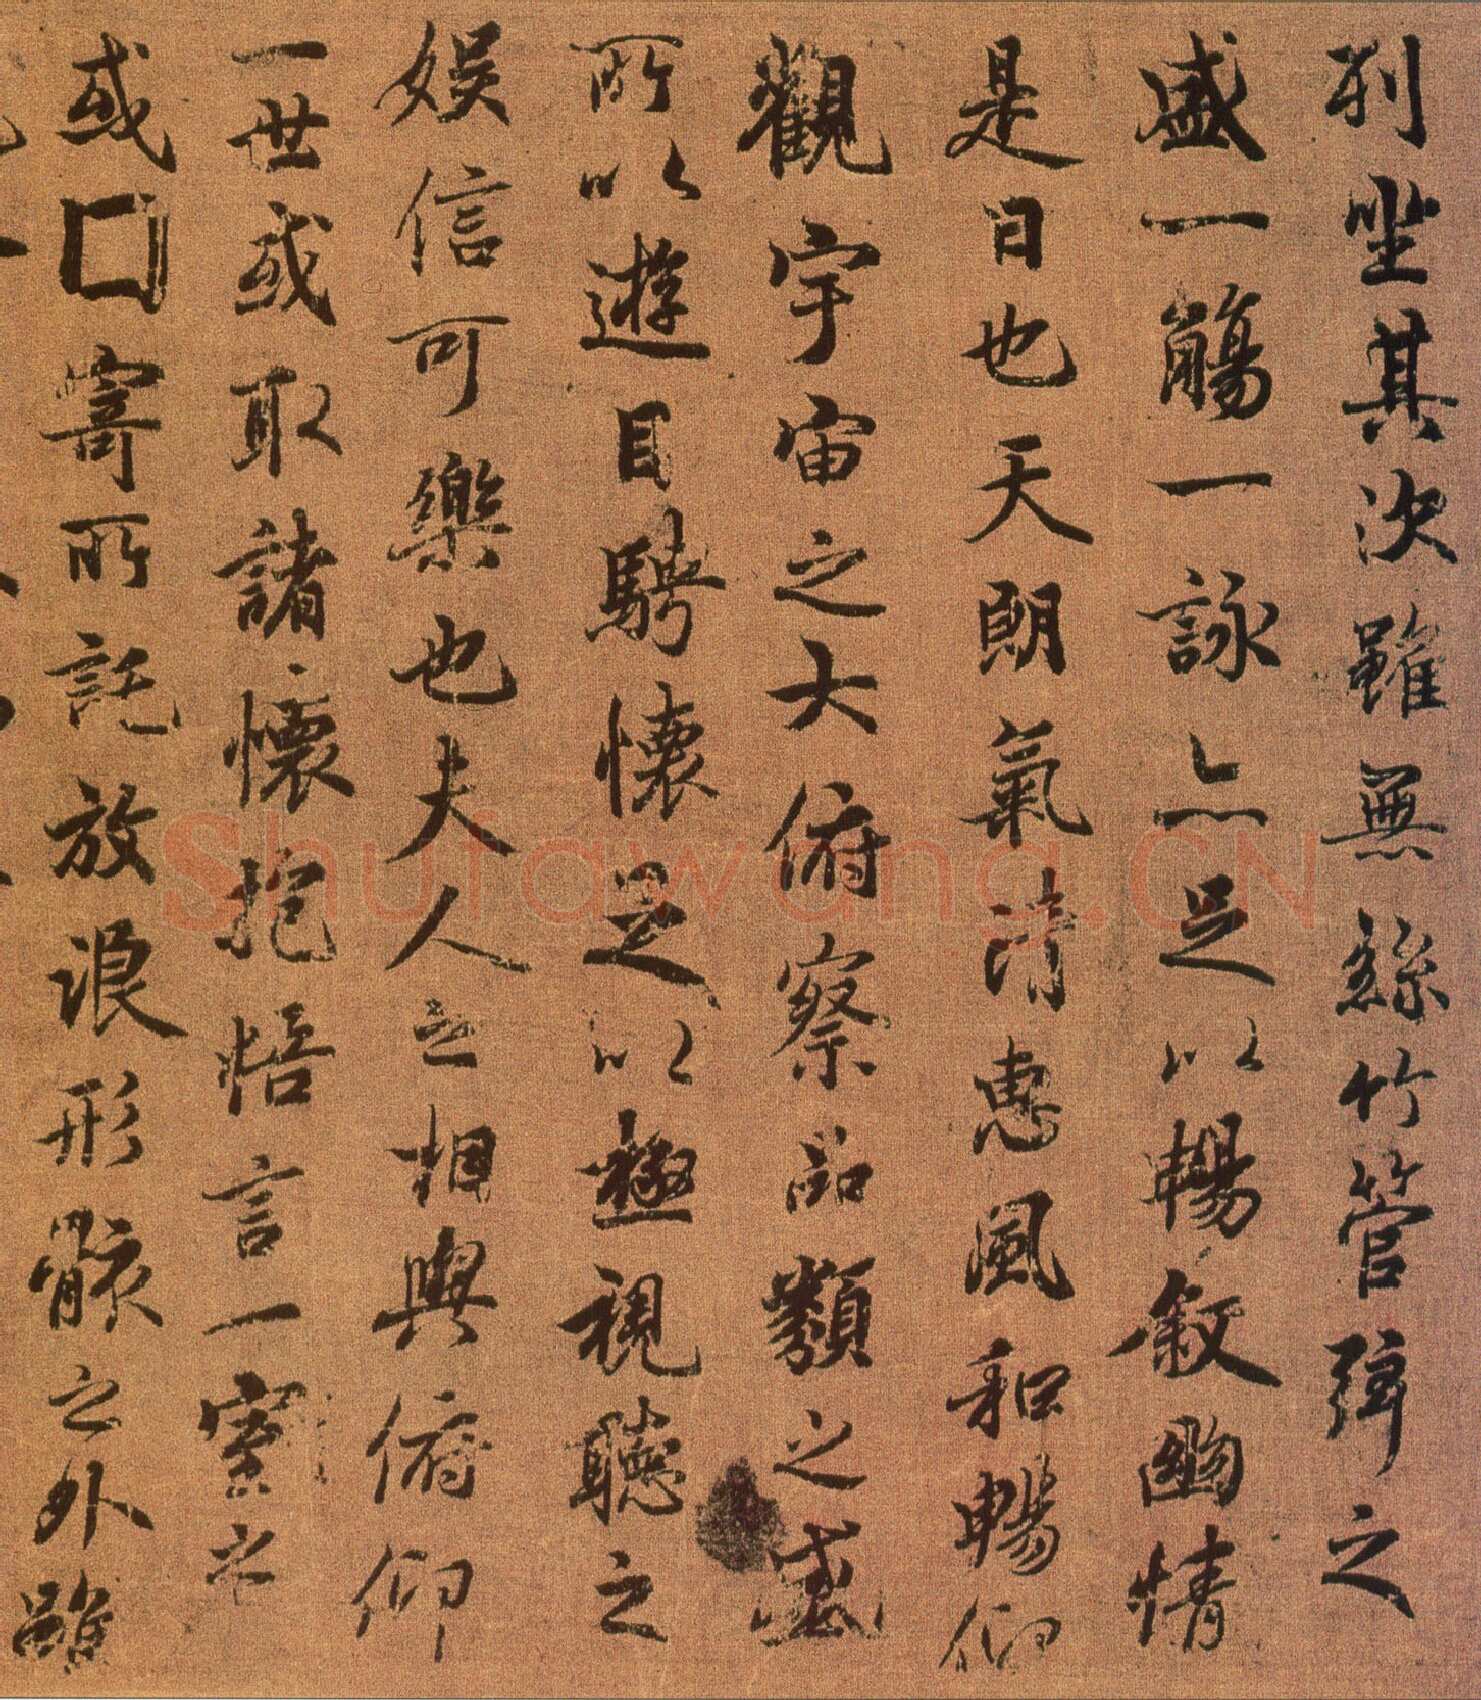 列坐其次雖無絲竹管弦之
盛一觴一詠亦足以暢敘幽情
是日也天朗氣清惠風和暢仰
觀宇宙之大俯察品類之盛
所以遊目騁懷足以極視聽之
娛信可樂也夫人之相與俯仰
一世或取諸懷抱悟言一室之
或囗寄所託放浪形骸之外雖
Shufawang.CN